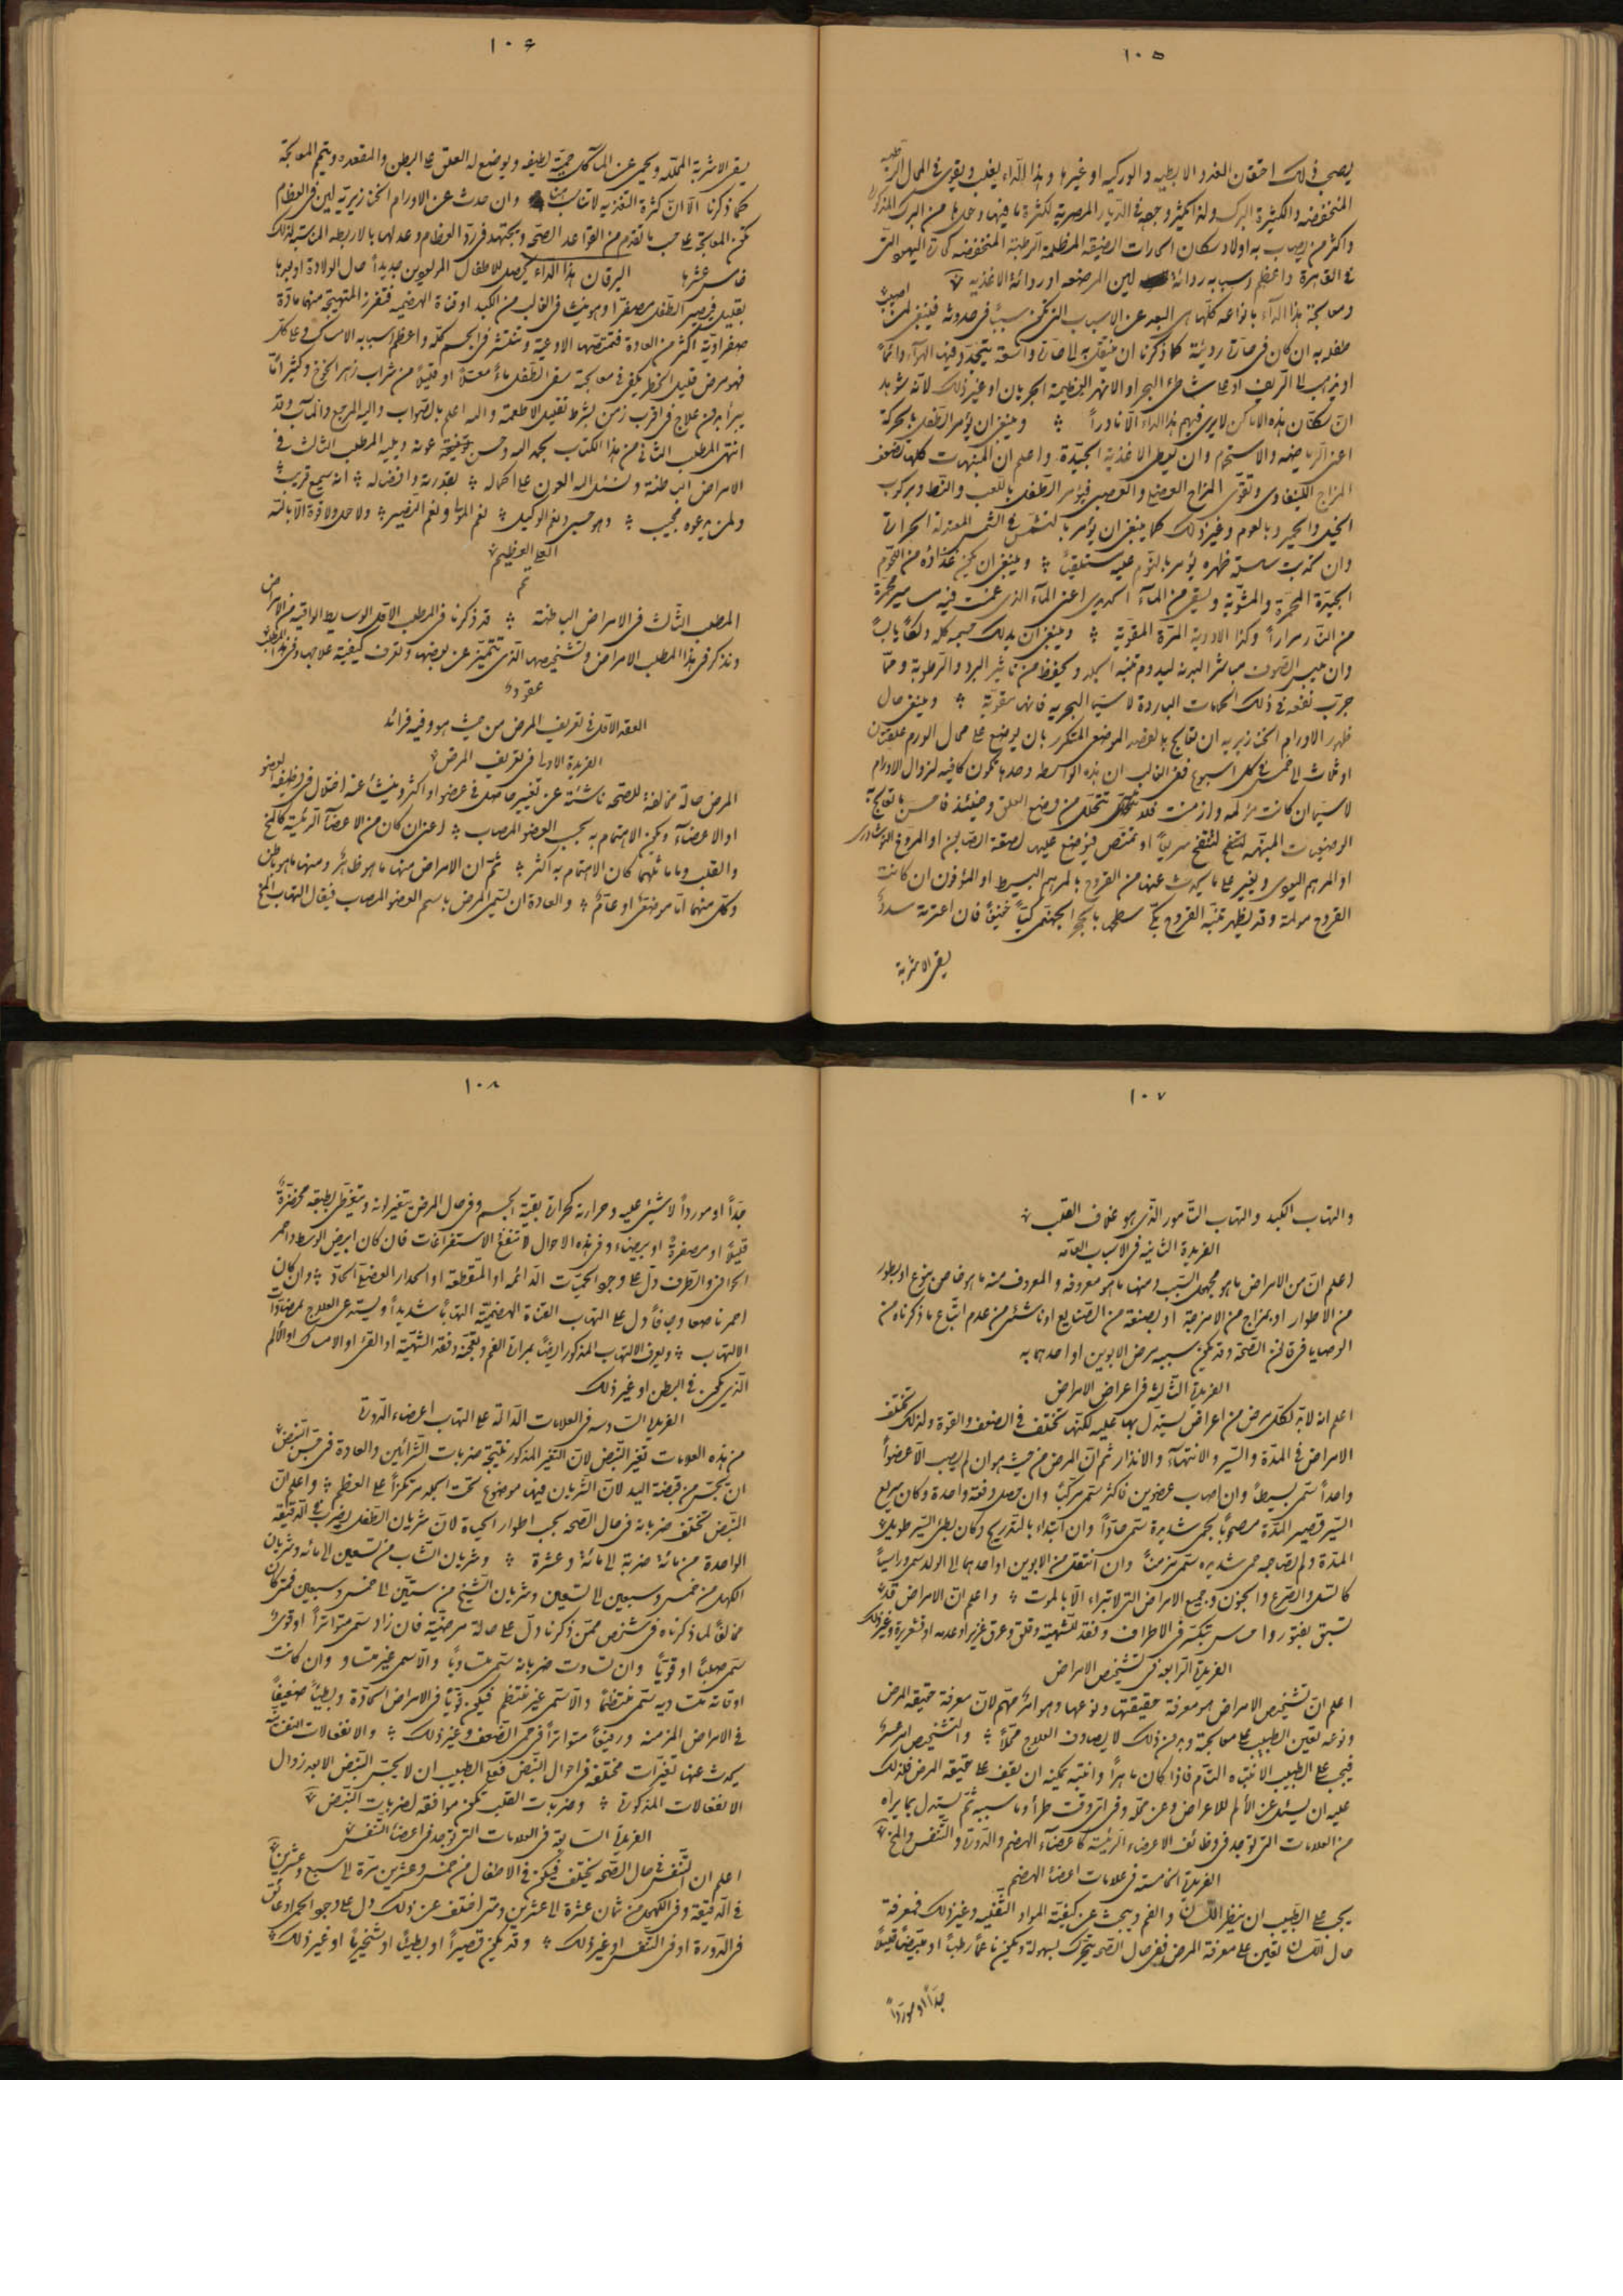 ١٠٥
يصحب ذلك احتقان الغدد الابطيه والوركيه او غيرها وهذا الداء يغلب ويقوى فى المحال الرطبه
المنخفضه والكثيرة البرك ولذا يكثر وجوده فى الديار المصرية لكثرة ما فيها وحدها من البرك المذكورة
واكثر من يصاب به اولاد سكان الحارات الضيقة المظلمة الرطبة المنخفضه كحارة اليهود التى
فى القاهرة واعظم سببه رداءة لبن المرضعه او رداءة الاغذيه
ومعالجة هذا الداء بانواعه كلها هى البعد عن الاسباب التى تكون سببًا فى حدوثه فينبغى لمن اصيب
طفله به ان كان فى حارة رديئة كما ذكرنا ان ينتقل به الى حارة واسعة يتجدد فيها الهواء دائمًا
او يذهب الى الريف او على شاطئ البحر او الانهر العظيمة الجريان او غير ذلك لانه شوهد
ان سكان هذه الاماكن لا يرى فيهم هذا الداء الا نادراً وينبغى ان يؤمر الطفل بالحركة
اعنى الرياضه والاستحمام وان يعطى الاغذية الجيدة واعلم ان المنبهات كلها تضعف
المزاج اللينفاوى وتقوى المزاج العضلى والعصبى فيؤمر الطفل باللعب والنط وبركوب
الخيل والحمير وبالعوم وغير ذلك كما ينبغى ان يؤمر بالتشمس فى الشمس المعتدلة الحرارة
وان كربت سلسلة ظهره يؤمر بالنوم عليه مستلقيًا وينبغى ان يكون غذاؤه من اللحوم
الجيدة المحمرة والمشوية ويسقى من الماء الحديدى اعنى الماء الذى غمست فيه مسامير محمرة
من النار مرارًا وكذا الادوية المرة المقوية وينبغى ان يدلك جسمه كله دلكًا يابسًا
وان يلبس الصوف مباشرا لبدنه ليدوم تنبه الجلد ويحفظ من تاثير البرد والرطوبة ومما
جرب نفعه فى ذلك الحمامات الباردة لا سيما البحرية فانها مقوية وينبغى حال
ظهور الاورام الخنازيرية ان تعالج بالفصد الموضعى المتكرر بان يوضع على محال الورم علقتان
او ثلاث الى خمس فى كل اسبوع ففى الغالب ان هذه الواسطه وحدها تكون كافية لزوال الاورام
لا سيما ان كانت مؤلمه وازمنت فلا تتحلل من وضع العلق وحينئذ فاحسن ما تعالج به
الوضعيات المنبهه لتنفتح سريعًا او تمتص فيوضع عليها لصقة الصابون او المروخ النوشادرى
او المرهم اليودى ويغير على ما يحدث عنها من القروح بالمرهم البسيط او المؤفون ان كانت
القروح مولمة وقد يظهر تنبه القروح بكى سطحها بالحجر الجهنمى كيًا خفيفًا فان اعترته سدد
يسقى الاشربة
١٠٦
يسقى الاشربة المحلله ويحمى عن المآكل حمية لطيفه ويوضع له العلق على البطن والمقعده ويتمم المعالجة
كما ذكرنا الا ان كثرة التغذية لا تناسب هنا وان حدث عن الاورام الخنازيرية لين فى العظام
تكن المعالجة على حسب ما تقدم من القواعد الصحية ويجتهد فى رد العظام وعدلها بالاربطه المناسبة لذلك
خامس عشرها اليرقان هذا الداء يحصل للاطفال المولودين جديداً حال الولادة او بعدها
بقليل فيصير الطفل مصفرًا وهو ينشا فى الغالب من الكبد او قناة الهضميه فتفرز المتهيجة منهما مادة
صفراوية اكثر من العادة فتمتصها الاوعية وتنتشر فى الجسم كله واعظم اسبابه الامساك وعلى كل
فهو مرض قليل الخطر يكفى فى معالجته سقى الطفل ماءً معسلًا او قليلًا من شراب زهر الخوخ وكثيرا ما
يبرأ بدون علاج فى اقرب زمن بشرط تقليل الاطعمة والله اعلم بالصواب واليه المرجع والمآب وقد
انتهى المطلب الثانى من هذا الكتاب بحمد الله وحسن توفيقه وعونه ويليه المطلب الثالث فى
الامراض الباطنة ونسئل الله العون على اكماله بقدرته وافضاله انه سميع قريب
ولمن يدعوه مجيب وهو حسبى ونعم الوكيل نعم المولى ونعم النصير ولا حول ولا قوة الا بالله
العلى العظيم
تم
المطلب الثالث فى الامراض الباطنة قد ذكرنا فى المطلب الاول الوسايط الواقية من الامراض
ونذكر فى هذا المطلب الامراض وتشخيصها الذى تتميز عن بعضها وتعرف كيفية علاجها وفى هذا المطلب
عقود
العقد الاول فى تعريف المرض من حيث هو وفيه فرائد
الفريدة الاولى فى تعريف المرض
المرض حالة مخالفة للصحه ناشئة عن تغيير حاصل فى عضو او اكثر وينشأ عنه اختلال فى وظيفة العضو
او الاعضاء ويكون الاهتمام به بحسب العضو المصاب اعنى ان كان من الاعضاء الرئيسة كالمخ
والقلب وما ماثلهما كان الاهتمام به اكثر ثم ان الامراض منها ما هو ظاهر ومنها ما هو باطن
وكل منهما اما موضعى او عام والعادة ان يسمى المرض باسم العضو المصاب فيقال التهاب المخ
١٠٧
والتهاب الكبد والتهاب التامور الذى هو غلاف القلب
الفريدة الثانية فى الاسباب العامه
اعلم ان من الامراض ما هو مجهول السبب ومنها ما هو معروفه والمعروف منه ما هو خاص بنوع او بطور
من الاطوار او بمزاج من الامزجة او بصنعة من الصنايع او ناشئ من عدم اتباع ما ذكرناه من
الوصايا فى قانون الصحة وقد يكون سببه مرض الابوين او احدهما به
الفريدة الثالثة فى اعراض الامراض
اعلم انه لا بد لكل مرض من اعراض يستدل بها عليه لكنها تختلف فى الضعف والقوة ولذلك تختلف
الامراض فى المدة والسير والانتهاء والانذار ثم ان المرض من حيث هو ان لم يصب الا عضوًا
واحدًا سمى بسيطًا وان اصاب عضوين فاكثر سمى مركبًا وان حصل دفعة واحدة وكان سريع
السير قصير المدة مصحوبًا بحمى شديدة سمى حادًا وان ابتداء بالتدريج وكان بطئ السير طويل
المدة ولم تصاحبه حمى شديده سمى مزمنًا وان انتقل من الابوين او احدهما الى الولد سمى وراثيًا
كالسل والصرع والجنون وجميع الامراض التى لا تبراء الا بالموت واعلم ان الامراض قد
تسبق بفتور واحساس بتكسر فى الاطراف وفقد للشهية وقلق وعرق غزير او عدمه او قشعريرة وغير ذلك
الفريدة الرابعة فى تشخيص الامراض
اعلم ان تشخيص الامراض هو معرفة حقيقتها ونوعها وهو امر مهم لان معرفة حقيقة المرض
ونوعه تعين الطبيب على معالجته وبدون ذلك لا يصادف العلاج محلًا والتشخيص امر عسر
فيجب على الطبيب الانتباه التام فاذا كان ماهرًا وانتبه يمكنه ان يقف على حقيقة المرض فلذلك
عليه ان يسئل عن الألم للاعراض وعن محله وفى اى وقت طرأ وما سببه ثم يستدل بما يراه
من العلامات التى توجد فى وظائف الاعضاء الرئيسة كاعضاء الهضم والدورة والتنفس والمخ
الفريدة الخامسة فى علامات اعضاء الهضم
يجب على الطبيب ان ينظر اللسان والفم ويبحث عن كيفية المواد الثفلية وغير ذلك فمعرفة
حال اللسان تعين على معرفة المرض ففى حال الصحه يتحرك بسهولة ويكون ناعمًا رطبًا او مبيضًا قليلًا
جدًا او موردًا
١٠٨
جدًا او موردًا لا شيئ عليه وحرارته كحرارة بقية الجسم وفى حال المرض يتغير لونه ويتغطى بطبقه مخضرة
قليلًا او مصفرة او بيضاء وفى هذه الاحوال لا تنفع الاستفراغات فان كان ابيض الوسط واحمر
الحوافى والطرف دل على وجود الحميات الدائمه او المتقطعة او الجدار العضلى الحاد وان كان
احمر ناصعا وجافًا دل على التهاب القناة الهضمية التهابًا شديدًا ويستدعى العلاج بمضادات
الالتهاب ويعرف الالتهاب المذكور ايضًا بمرارة الفم وتعجنه وفقد الشهية او القئ او الامساك او الألم
الذى يكون فى البطن او غير ذلك
الفريدة السادسه فى العلامات الدالة على التهاب اعضاء الدورة
من هذه العلامات تغير النبض لان التغير المذكور نتيجة ضربات الشرائين والعادة فى جس النبض
ان يجس من قبضة اليد لان الشريان فيها موضوع تحت الجلد مرتكزًا على العظم واعلم ان
النبض تختلف ضرباته فى حال الصحه بحسب اطوار الحياة لان شريان الطفل يضرب فى الدقيقة
الواحدة من مائة ضربة الى مائة وعشرة وشريان الشاب من تسعين الى مائه وشريان
الكهل من خمس وسبعين الى تسعين وشريان الشيخ من ستين الى خمس وسبعين فمتى كان
مخالفًا لما ذكرناه فى شخص ممن ذكرنا دل على حالة مرضية فان زاد سمى متواترًا او قوى
سمى صلبًا او قويًا وان تساوت ضرباته سمى متساويًا والا سمى غير متساو وان كانت
اوقاته متساوية سمى منتظمًا والا سمى غير منتظم فيكون قويًا فى الامراض الحادة وبطيئًا ضعيفًا
فى الامراض المزمنة ورفيعًا متواترًا فى حمى الضعف وغير ذلك والانفعالات النفسانية
يحدث عنها تغيرات مختلفه فى احوال النبض فعلى الطبيب ان لا يجس النبض الا بعد زوال
الانفعالات المذكورة وضربات القلب تكون موافقه لضربات النبض
الفريدة السابعة فى العلامات التى توجد فى اعضاء التنفس
اعلم ان التنفس فى حال الصحه يختلف فيكون فى الاطفال من خمس وعشرين مرة الى سبع وعشرين
فى الدقيقة وفى الكهول من ثمان عشرة الى عشرين ومتى اختلف عن ذلك دل على وجود الحمى او عائق
فى الدورة او فى التنفس او غير ذلك وقد يكون قصيرًا او بطيئًا او شخيريًا او غير ذلك